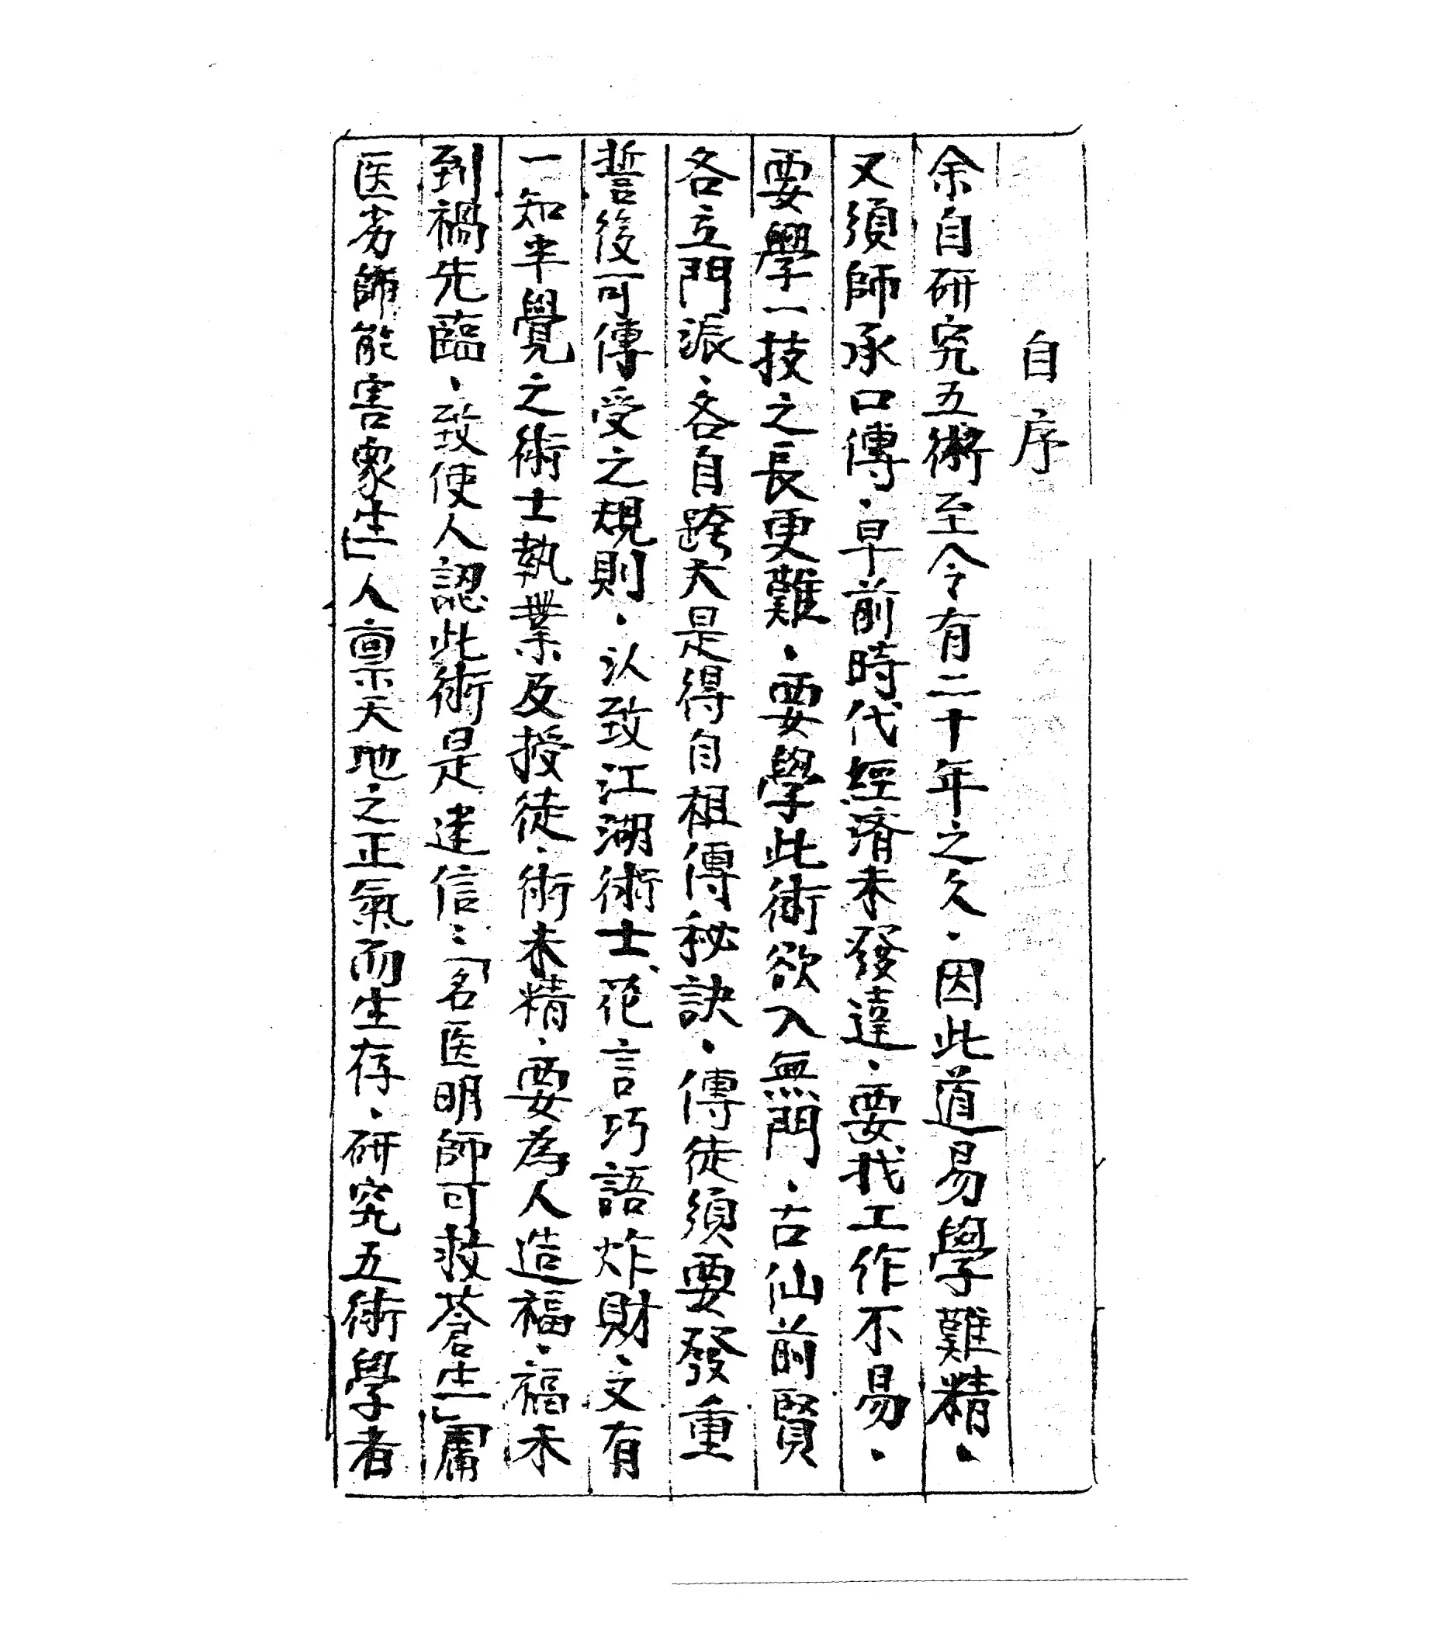 自序
余自研究五術至今有二十年之久．因此道易學難精．
又須師承口傳．早前時代經濟未發達．要找工作不易．
要學一技之長更難．要學此術欲入無門．古仙前賢
各立門派．各自跨大是得自祖傳秘訣．傳徒須要發重
誓後可傳受之規則．以致江湖術士、花言巧語炸財．又有
一知半覺之術士執業及授徒．術未精．要為人造福．福未
到禍先臨．致使人認此術是迷信：「名医明師可救蒼生」「庸
医劣師能害眾生」人稟天地之正氣而生存．研究五術學者